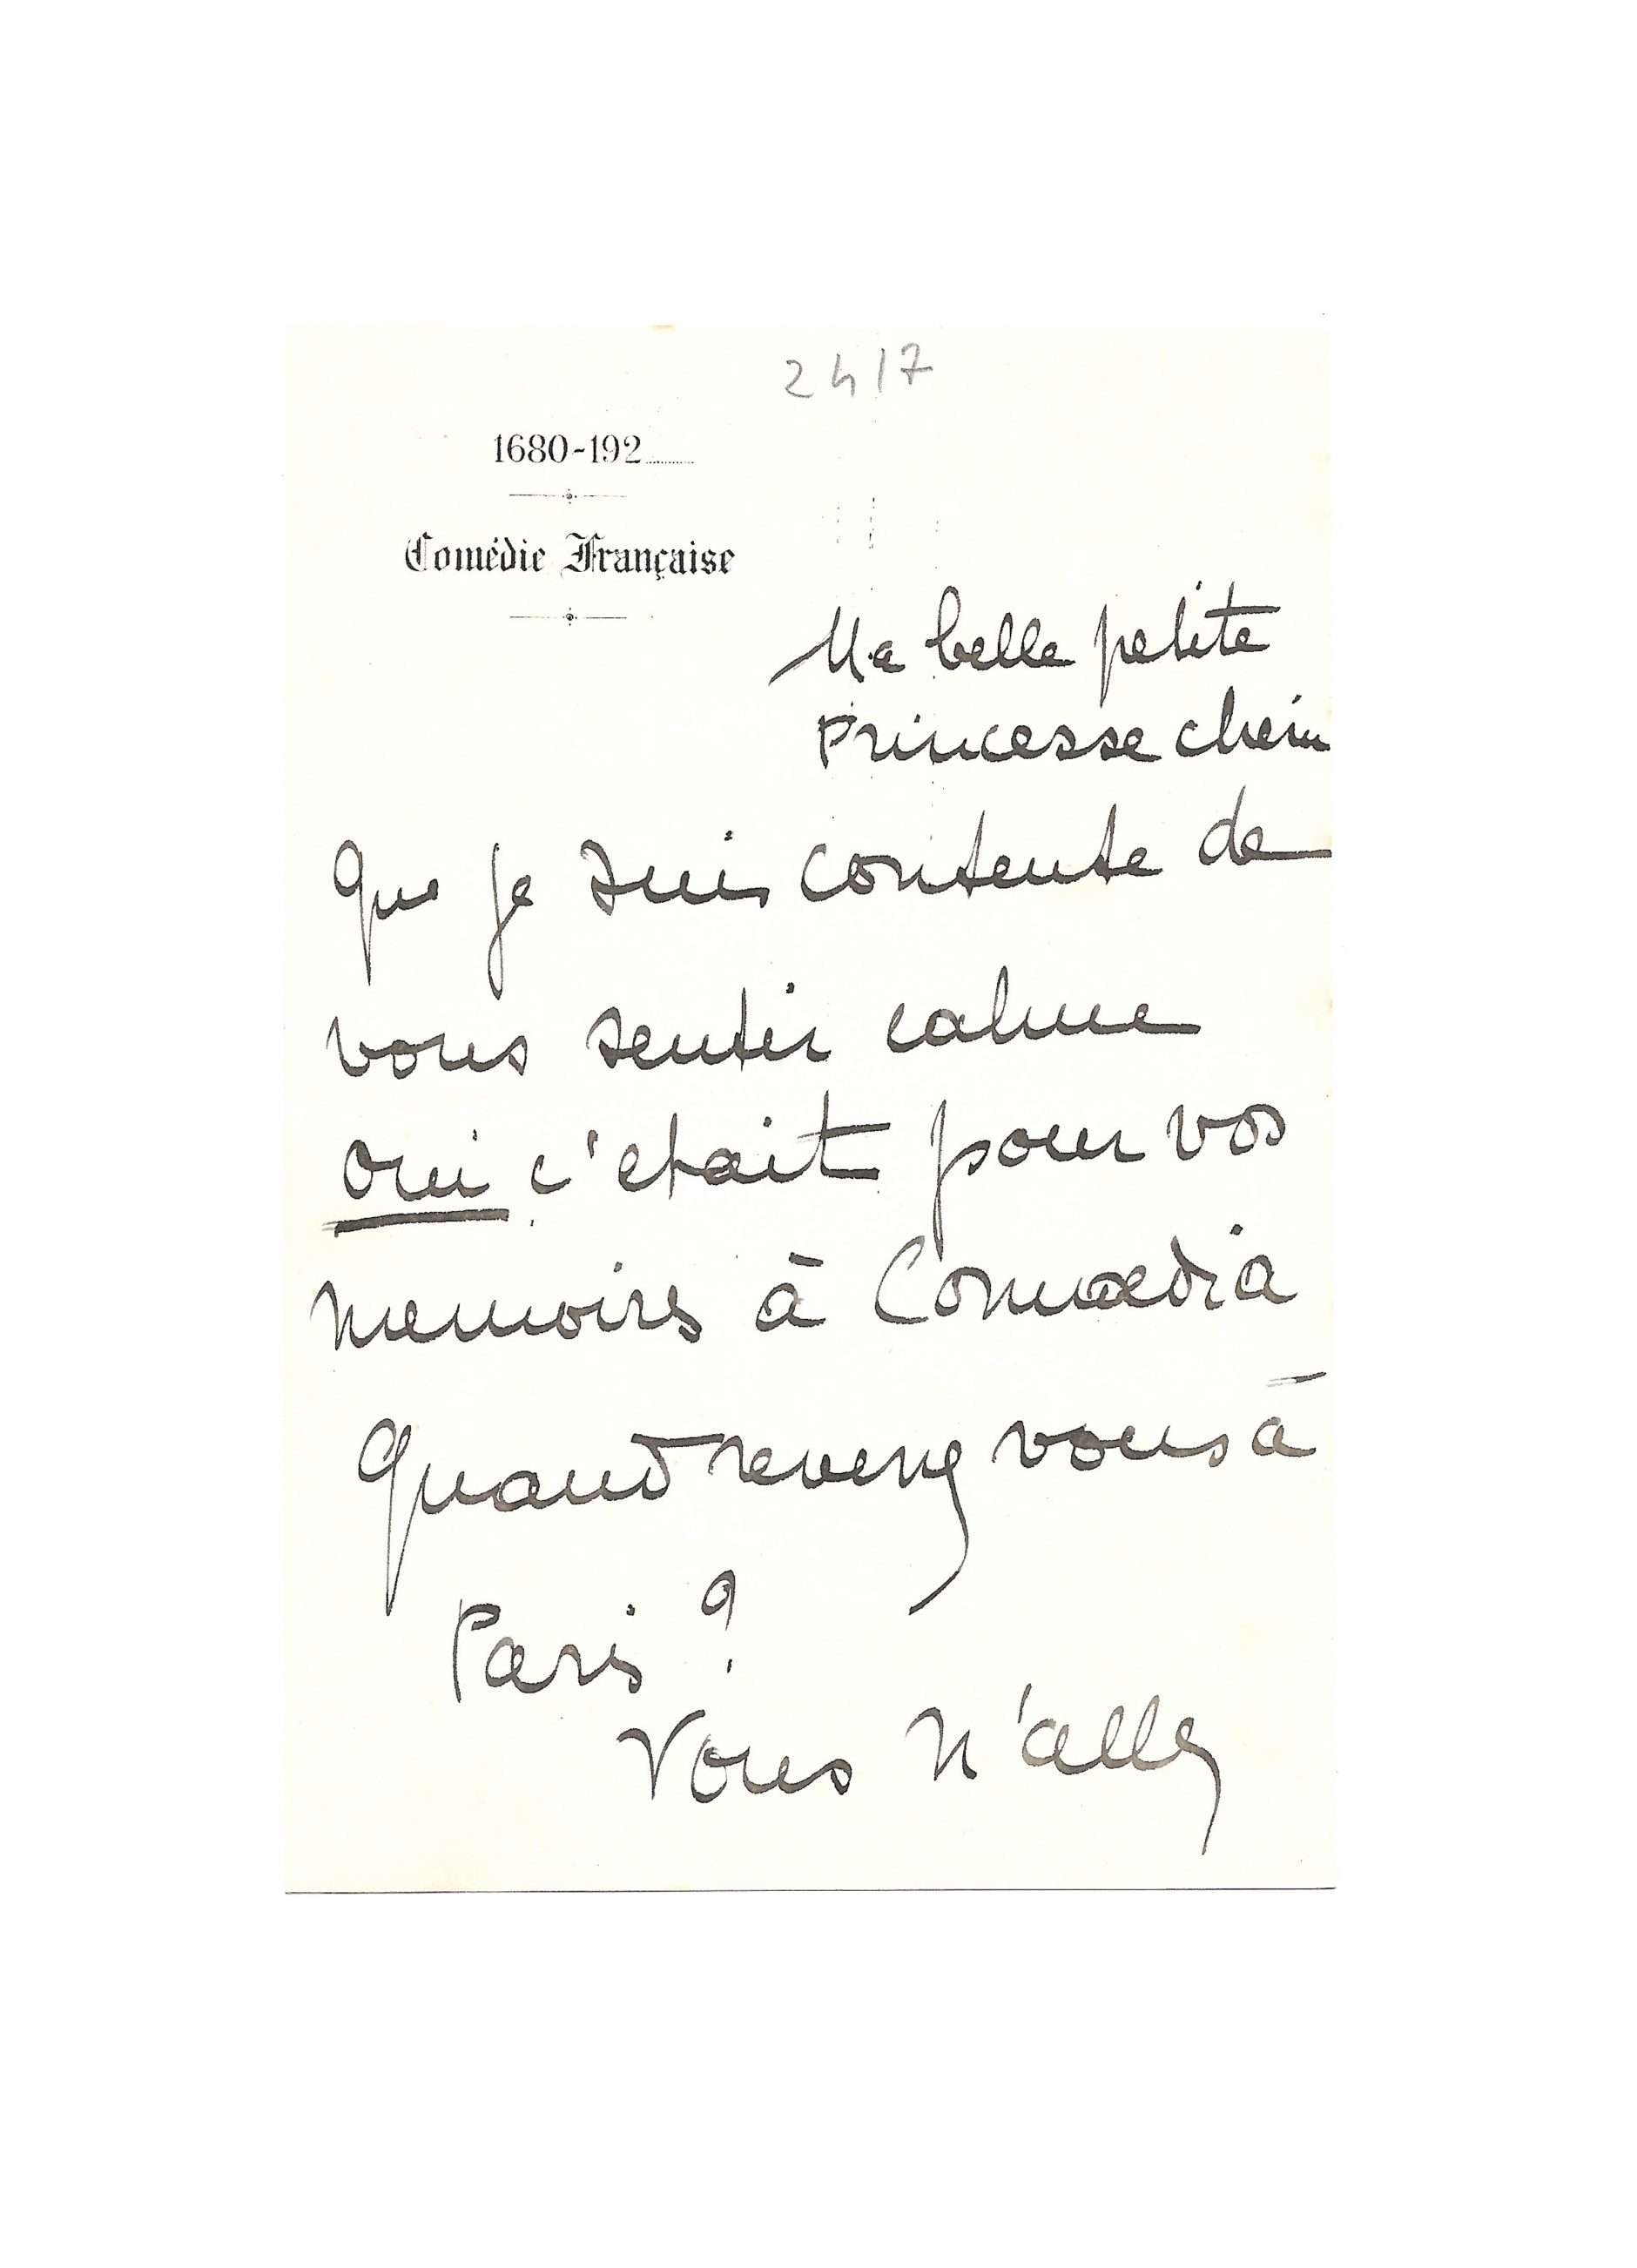 2417
1680-192
Comédie Française
Ma belle petite
Princesse cherie
Que je suis contente de
vous sentir calme
oui c'etait pour vos
memoires à Comœdia
Quand revenez vous à
Paris ?
Vous n'allez